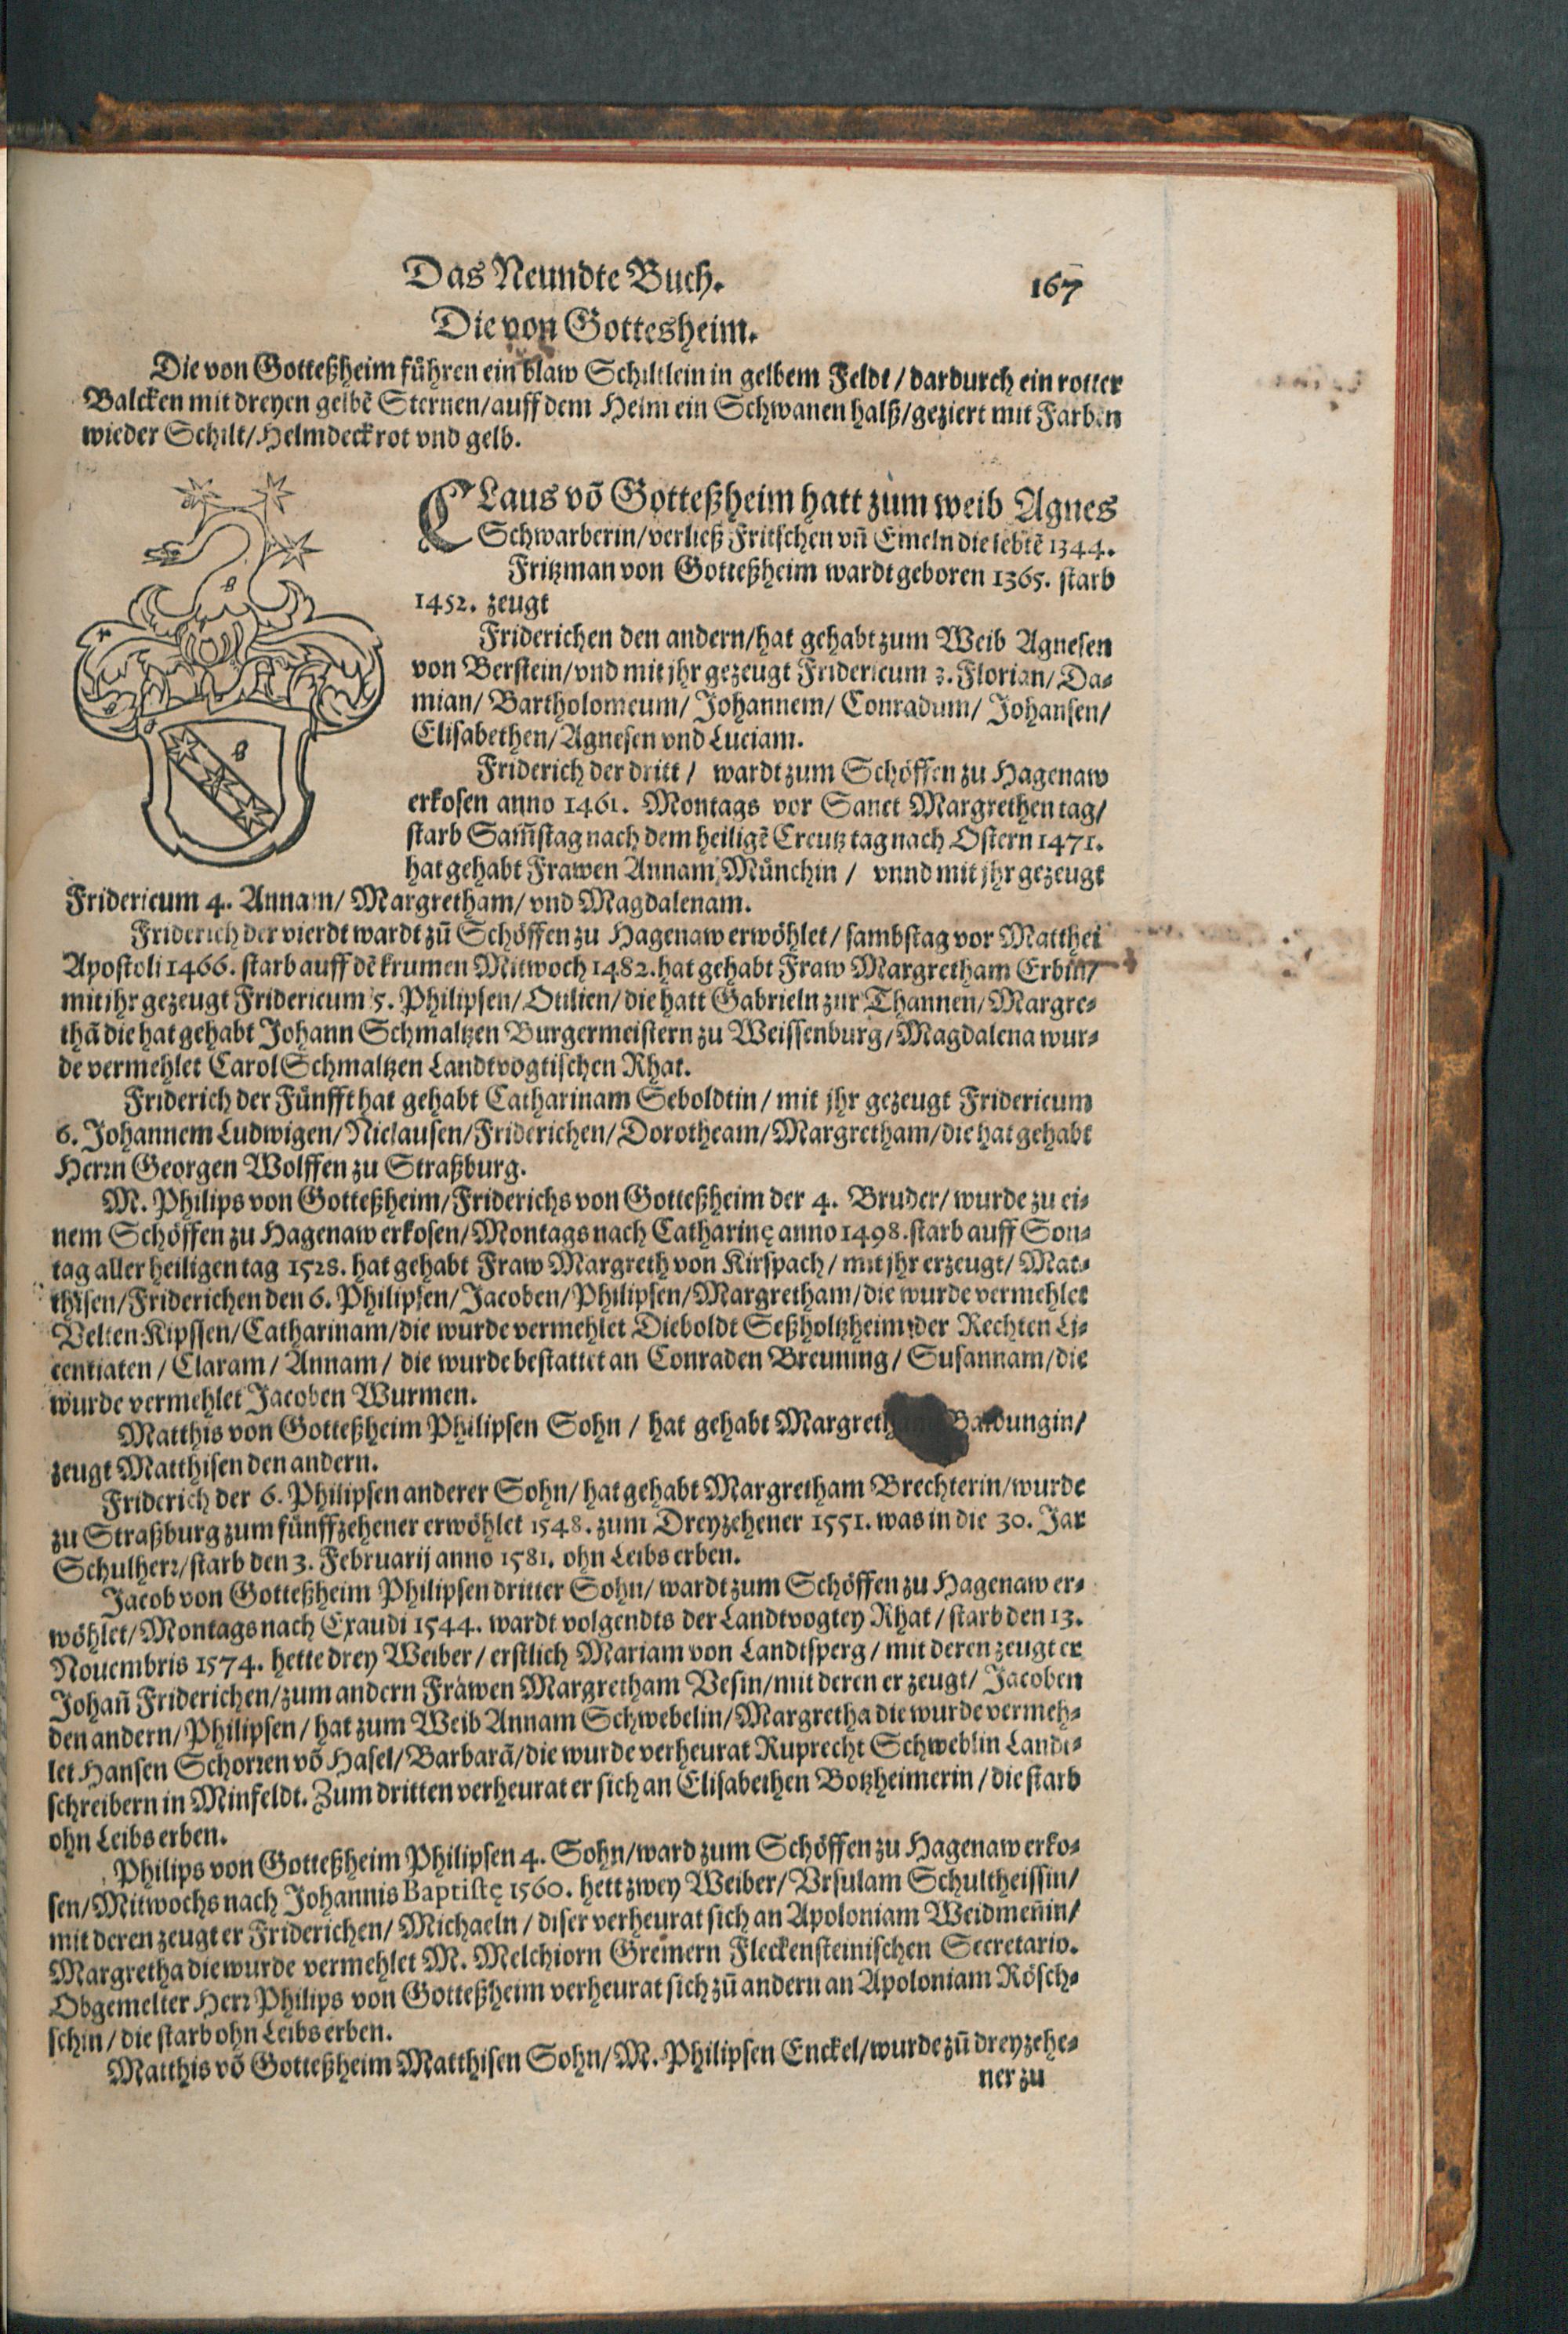 Das Neundte Buch.
167
Die von Gottesheim.
Die von Gotteßheim führen ein blaw Schiltlein in gelbem Feldt / dardurch ein rotter
Balcken mit dreyen gelbẽ Sternen / auff dem Helm ein Schwanen halß / geziert mit Farben
wie der Schilt / Helmdeck rot vnd gelb.
CLaus võ Gotteßheim hatt zum weib Agnes
Schwarberin / verließ Fritschen vñ Emeln die lebtẽ 1344.
Fritzman von Gotteßheim wardt geboren 1365. starb
1452. zeugt
Friderichen den andern / hat gehabt zum Weib Agnesen
von Berstein / vnd mit jhr gezeugt Fridericum 3. Florian / Da-
mian / Bartholomeum / Johannem / Conradum / Johansen /
Elisabethen / Agnesen vnd Luciam.
Friderich der dritt / wardt zum Schöffen zu Hagenaw
erkosen anno 1461. Montags vor Sanct Margrethen tag /
starb Sam̃stag nach dem heiligẽ Creutz tag nach Ostern 1471.
hat gehabt Frawen Annam Münchin / vnnd mit jhr gezeugt
Fridericum 4. Annam / Margretham / vnd Magdalenam.
Friderich der vierdt wardt zũ Schöffen zu Hagenaw erwöhlet / sambstag vor Matthei
Apostoli 1466. starb auff dẽ krumen Mitwoch 1482. hat gehabt Fraw Margretham Erbin /
mit jhr gezeugt Fridericum 5. Philipsen / Otilien / die hatt Gabrieln zur Thannen / Margre-
thã die hat gehabt Johann Schmaltzen Burgermeistern zu Weissenburg / Magdalena wur-
de vermehlet Carol Schmaltzen Landtvogtischen Rhat.
Friderich der Fünfft hat gehabt Catharinam Seboldtin / mit jhr gezeugt Fridericum
6. Johannem Ludwigen / Niclausen / Friderichen / Dorotheam / Margretham / die hat gehabt
Herrn Georgen Wolffen zu Straßburg.
M. Philips von Gotteßheim / Friderichs von Gotteßheim der 4. Bruder / wurde zu ei-
nem Schöffen zu Hagenaw erkosen / Montags nach Catharinę anno 1498. starb auff Son-
tag aller heiligen tag 1528. hat gehabt Fraw Margreth von Kirspach / mit jhr erzeugt / Mat-
thisen / Friderichen den 6. Philipsen / Jacoben / Philipsen / Margretham / die wurde vermehlet
Velten Kipssen / Catharinam / die wurde vermehlet Dieboldt Seßholtzheim der Rechten Li-
centiaten / Claram / Annam / die wurde bestattet an Conraden Breuning / Susannam / die
wurde vermehlet Jacoben Wurmen.
Matthis von Gotteßheim Philipsen Sohn / hat gehabt
zeugt Matthisen den andern.
Friderich der 6. Philipsen anderer Sohn / hat gehabt Margretham Brechterin / wurde
zu Straßburg zum fünffzehener erwöhlet 1548. zum Dreyzehener 1551. was in die 30. Jar
Schulherr / starb den 3. Februarij anno 1581. ohn Leibs erben.
Jacob von Gotteßheim Philipsen dritter Sohn / wardt zum Schöffen zu Hagenaw er-
wöhlet / Montags nach Exaudi 1544. wardt volgendts der Landtvogtey Rhat / starb den 13.
Nouembris 1574. hette drey Weiber / erstlich Mariam von Landtsperg / mit deren zeugt er
Johañ Friderichen / zum andern Frawen Margretham Vesin / mit deren er zeugt / Jacoben
den andern / Philipsen / hat zum Weib Annam Schwebelin / Margretha die wurde vermeh-
let Hansen Schorren võ Hasel / Barbarã / die wurde verheurat Ruprecht Schweblin Landt-
schreibern in Minfeldt. Zum dritten verheurat er sich an Elisabethen Botzheimerin / die starb
ohn Leibs erben.
Philips von Gotteßheim Philipsen 4. Sohn / ward zum Schöffen zu Hagenaw erko-
sen / Mitwochs nach Johannis Baptistę 1560. hett zwey Weiber / Vrsulam Schultheissin /
mit deren zeugt er Friderichen / Michaeln / diser verheurat sich an Apoloniam Weidmeñin /
Margretha die wurde vermehlet M. Melchiorn Greinern Fleckensteinischen Secretario.
Obgemelter Herr Philips von Gotteßheim verheurat sich zũ andern an Apoloniam Rösch-
schin / die starb ohn Leibs erben.
Matthis võ Gotteßheim Matthisen Sohn / M. Philipsen Enckel / wurde zũ dreyzehe-
ner zu